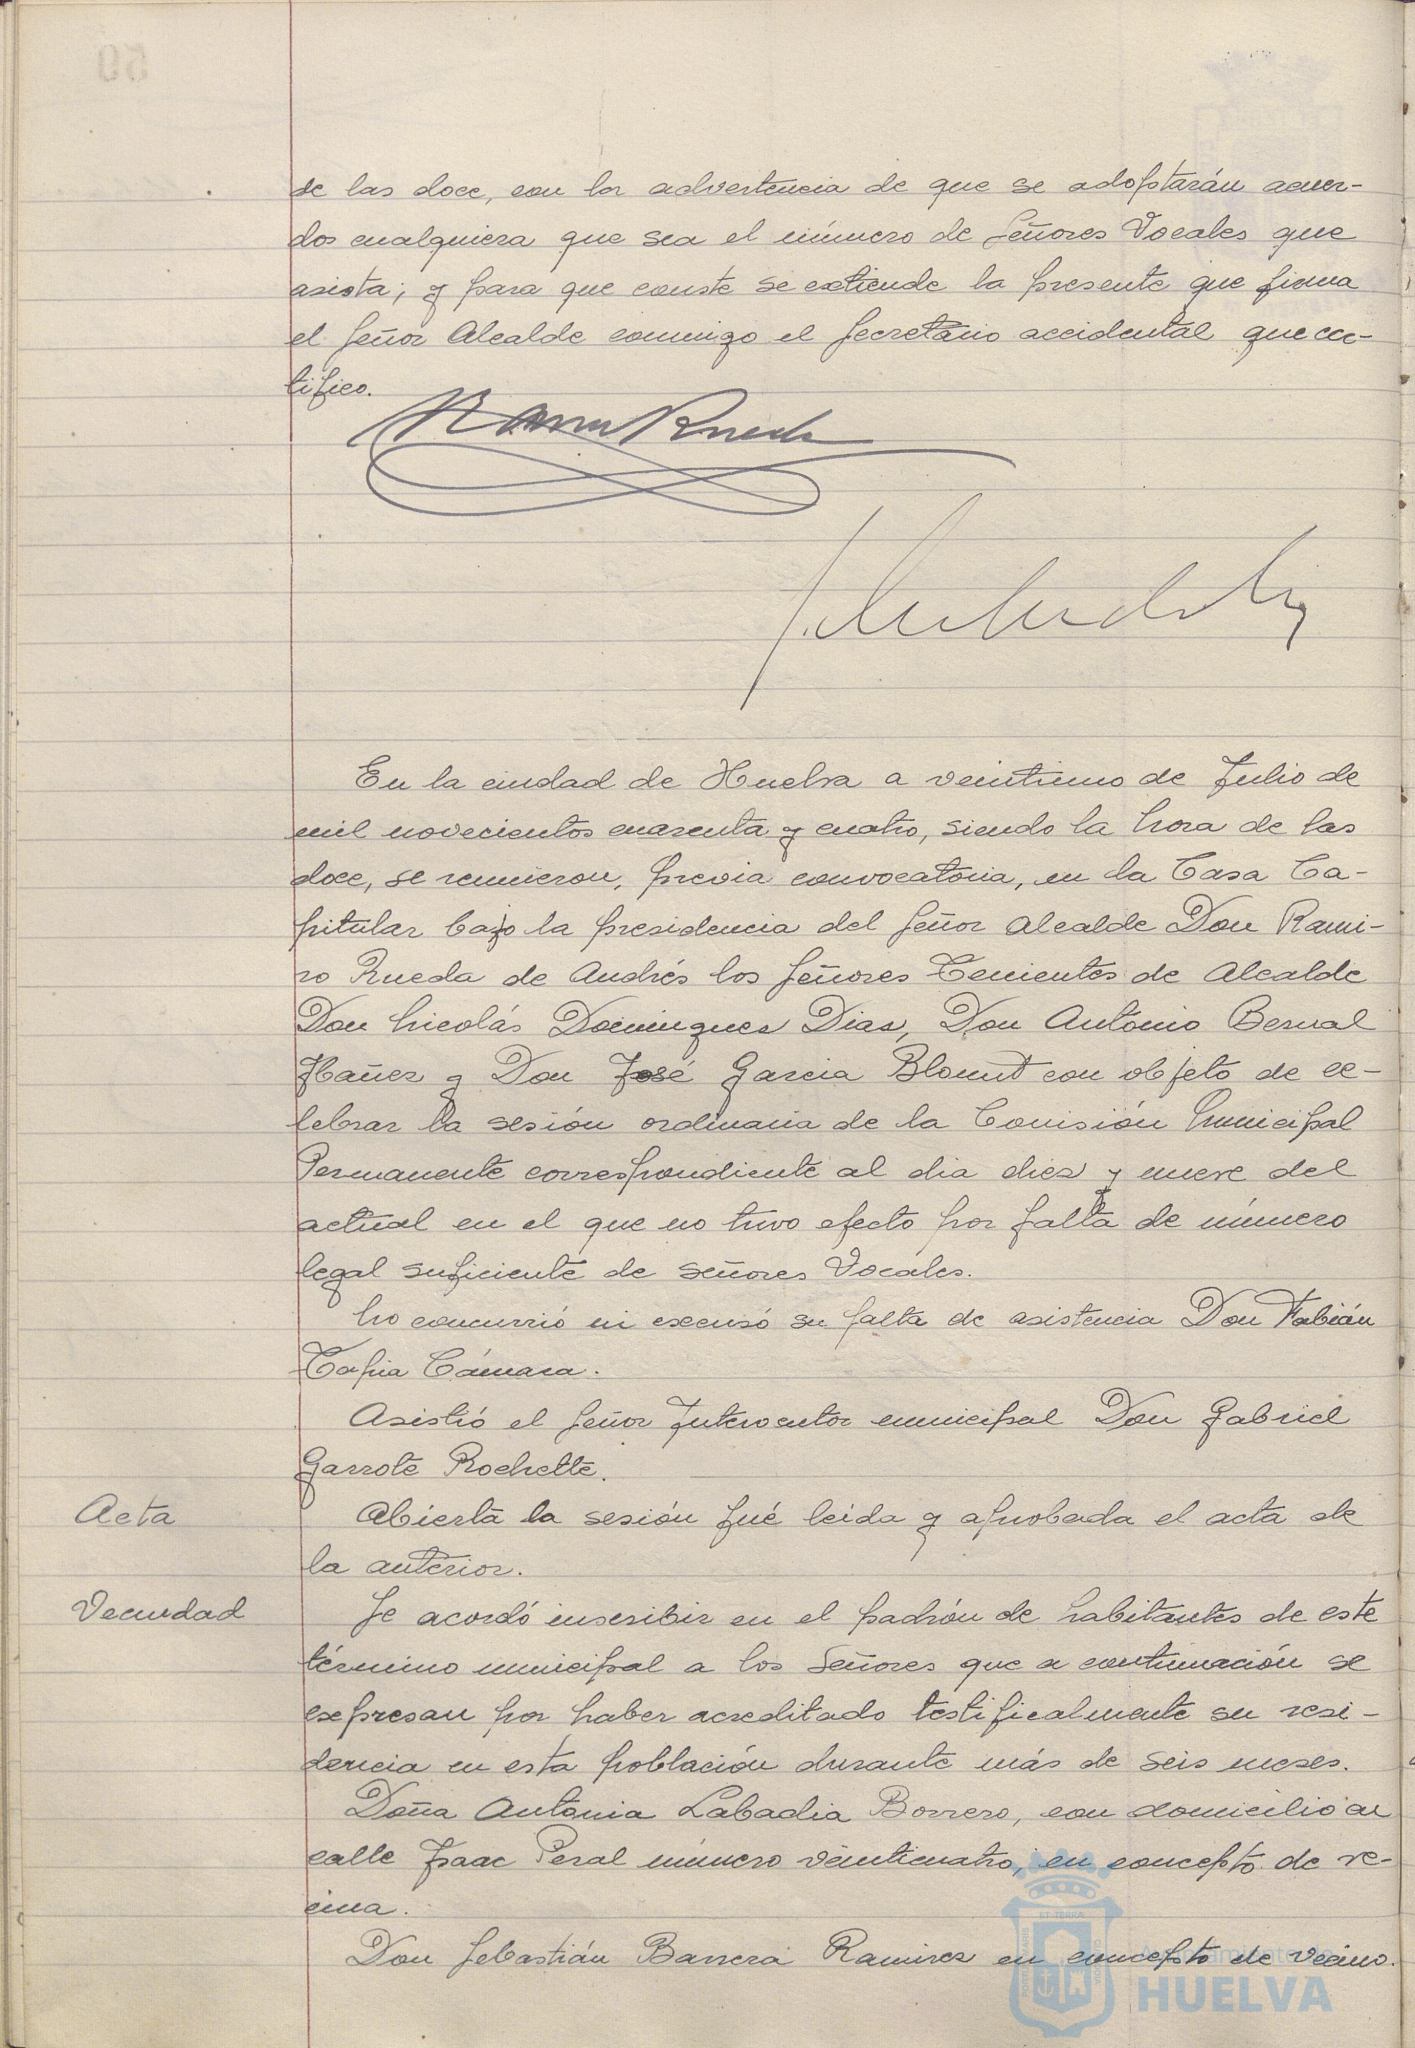 de las doce, con la advertencia de que se adoptarán acuer-
dos cualquiera que sea el número de Señores Vocales que
asista; y para que conste se extiende la presente que firma
el Señor Alcalde conmigo el Secretario accidental que cer-
tifico.
Ramiro Rueda
En la ciudad de Huelva a veintiuno de Julio de
mil novecientos cuarenta y cuatro, siendo la hora de las
doce, se reunieron, previa convocatoria, en la Casa Ca-
pitular bajo la presidencia del Señor Alcalde Don Rami-
ro Rueda de Andrés los Señores Tenientes de Alcalde
Don Nicolás Domingues Dias, Don Antonio Bernal
Ibañez y Don José Garcia Blount con objeto de ce-
lebrar la sesión ordinaria de la Comisión Municipal
Permanente correspondiente al dia diez y nueve del
actual en el que no tuvo efecto por falta de número
legal suficiente de señores Vocales.
No concurrió ni excusó su falta de asistencia Don Fabián
Tapia Cámara.
Asistió el Señor Interventor municipal Don Gabriel
Garrote Rochette.
Acta
Abierta la sesión fué leida y aprobada el acta de
la anterior.
Vecindad
Se acordó inscribir en el padrón de habitantes de este
término municipal a los Señores que a continuación se
expresan por haber acreditado testificalmente su resi-
dencia en esta población durante más de seis meses.
Doña Antonia Labadia Borrero, con domicilio en
calle Isaac Peral número veinticuatro, en concepto de ve-
cina.
Don Sebastián Barrera Ramirez en concepto de vecino.
Ayuntamiento de
HUELVA